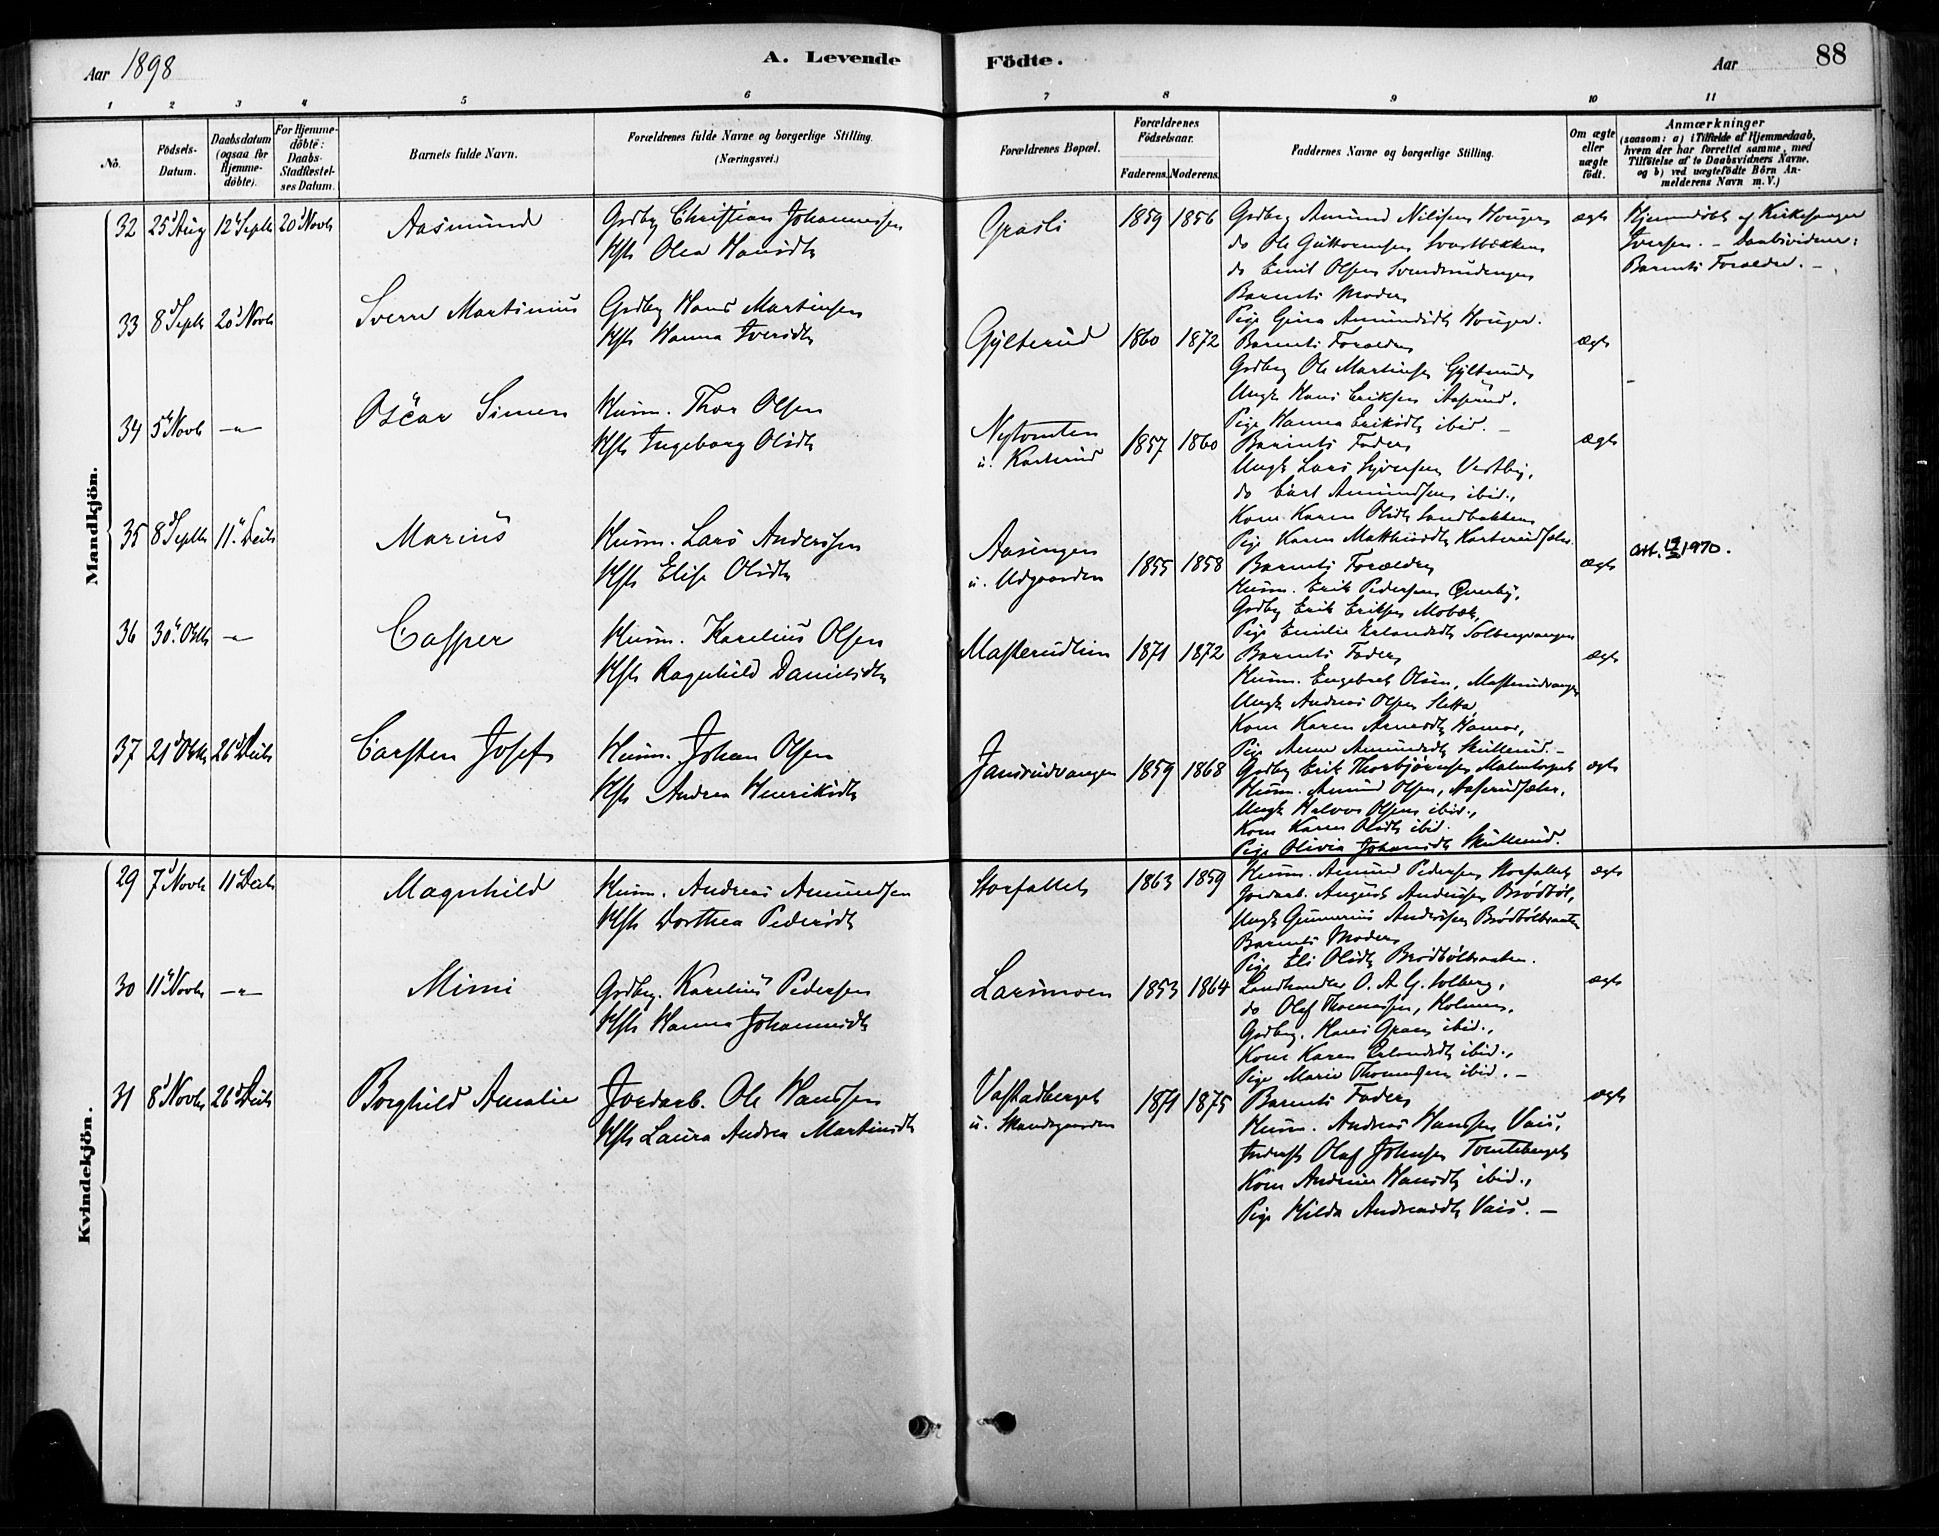 Aar 1898
A. Levende
Födte.
Aar
88
1 2 3 4 5 6 7 8 9 10 11
No.
Födsels-
Datum.
Daabsdatum
(ogsaa for
Hjemme-
döbte).
For Hjemme-
döbte:
Daabs-
Stadfæstel-
ses Datum.
Barnets fulde Navn.
Forældrenes fulde Navne og borgerlige Stilling.
(Næringsvei.)
Forældrenes Bopæl.
Forældrenes
Födselsaar.
Faderens. Moderens.
Faddernes Navne og borgerlige Stilling.
Om ægte
eller
uægte
födt.
Anmærkninger
(saasom: a) i Tilfælde af Hjemmedaab,
hvem der har forrettet samme, med
Tilföielse af to Daabsvidners Navne.
og b) ved uægtefödte Börn An-
melderens Navn m. V.)
Mandkjön.
32 25 Aug 12 Septb 20 Novb Aasmund
Grdbr Christian Johannessen
Hstr Olea Hansdtr
Grasli 1859 1856
Grdbrg Amund Nilsen Houger
do Ole Guttormsen Svartbækken
do Emil Olsen Svendsrudengen
Barnets Moder
Pige Gina Amundsdtr Houger.
ægte
Hjemmedöbt af Kirkesanger
Iversen. – Daabsvidner:
Barnets Forældre. –
33 8 Septb 20 Novb Sverre Martinius
Grdbr Hans Martinsen
Hstr Hanna Iversdtr
Gylterud 1860 1872
Barnets Forældre
Grdbrg Ole Martinsen Gylterud
Ungk Hans Eriksen Aaserud,
Pige Hanna Eriksdtr ibid. –
ægte
34 5 Novb –"– Oscar Simen
Husm. Thor Olsen
Hstr Ingeborg Olsdtr
Nytomten
u. Karterud 1857 1860
Barnets Fader
Ungk Lars Syversen Vestby,
do Carl Amundsen ibid.,
Kone Karen Olsdtr Sandbakken
Pige Karen Matthisdtr Karterudsæter.
ægte
35 8 Septb 11 Decb Marius
Husm. Lars Anderssen
Hstr Elise Olsdtr
Aasengen
u. Udgaarden 1855 1858
Barnets Forældre
Husm. Erik Pedersen Overby,
Grdbr Erik Eriksen Mobæk,
Pige Emilie Erlandsdtr Solbergvangen
ægte
1970.
36 30 Oktb –"– Casper
Husm. Karelius Olsen
Hstr Ragnhild Danielsdtr
Masterudlien 1871 1872
Barnets Fader
Husm. Engebret Olsen, Masterudvangen
Ungk Andreas Olsen Sletta,
Kone Karen Arnesdtr Hamar,
Pige Anne Amundsdtr Skullerud. –
ægte
37 21 Oktb 26 Decb Carsten Josef
Husm. Johan Olsen
Hstr Andrea Henriksdtr
Jansrudvangen 1859 1868
Grdbrg Erik Thorbjörnsen Malmtorpet
Husm. Amund Olsen, Aaserudsæter,
Ungk Halvor Olsen ibid.,
Kone Karen Olsdtr ibid.
Pige Olivia Johansdtr Skullerud.
ægte
Kvindekjön.
29 7 Novb 11 Decb Magnhild
Husm. Andreas Amundsen
Hstr Dorthea Pedersdtr
Storfallet 1863 1859
Husm. Amund Pedersen Storfallet
Jordarb. August Andersen Brödböl,
Ungk Gunnerius Andersen Brödbölbraaten
Barnets Moder
Pige Eli Olsdtr Brödbölbraaten.
ægte
30 11 Novb –"– Mimi
Grdbrg. Karelius Pedersen
Hstr Hanna Johannesdtr
Larsmoen 1853 1864
Landhandler O. A. G. Solberg,
do Olaf Thomesen, Holmen,
Grdbrg. Hans Gran ibid.,
Kone Karen Erlandsdtr ibid.,
Pige Marie Thomesen ibid. –
ægte
31 8 Novb 26 Decb Borghild Amalie
Jordarb. Ole Hanssen
Hstr Laura Andrea Martinsdtr
Vastadberget
u. Skandsgaarden 1871 1875
Barnets Fader
Husm. Andreas Hanssen Vais,
Inderst Olaf Johnsen Tomteberget
Kone Andrine Hansdtr ibid.,
Pige Hilda Andreasdtr Vais. –
ægte